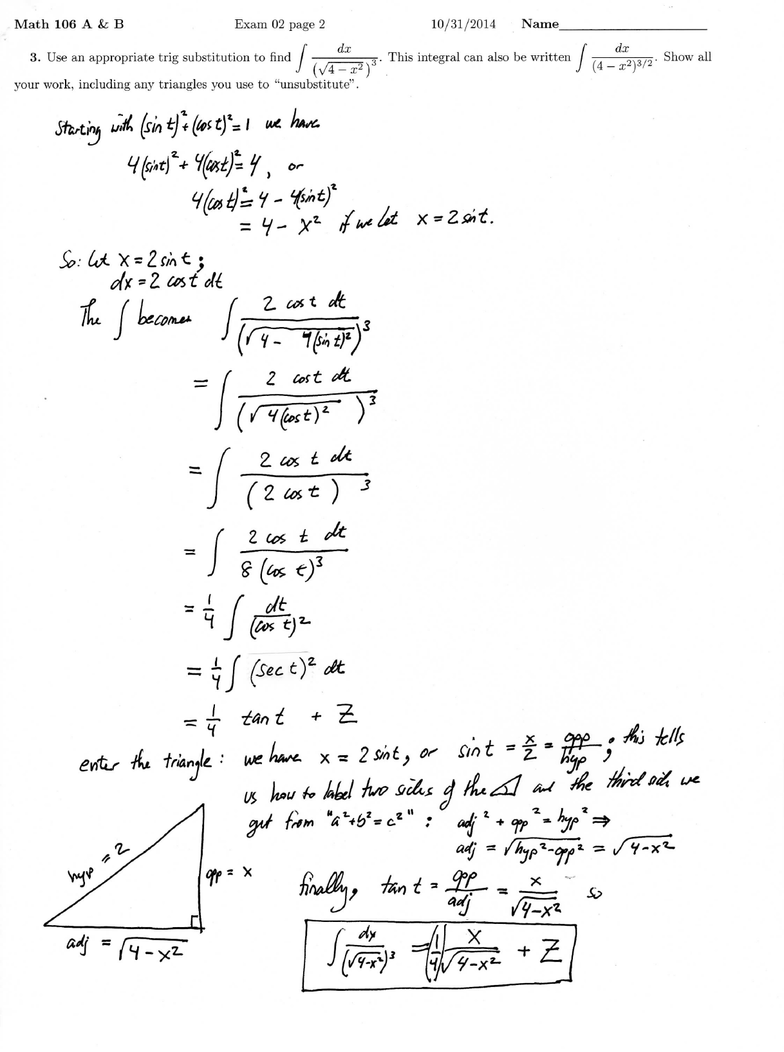 Math 106 A & B Exam 02 page 2 10/31/2014 Name
3. Use an appropriate trig substitution to find ∫ dx/(√(4 − x²))³. This integral can also be written ∫ dx/(4 − x²)^(3/2). Show all
your work, including any triangles you use to "unsubstitute".
Starting with (sin t)² + (cos t)² = 1 we have
4(sin t)² + 4(cos t)² = 4, or
4(cos t)² = 4 − 4(sin t)²
= 4 − x² if we let x = 2 sin t.
So: let x = 2 sin t;
dx = 2 cos t dt
The ∫ becomes ∫ 2 cos t dt/(√(4 − 4(sin t)²))³
= ∫ 2 cos t dt/(√(4(cos t)²))³
= ∫ 2 cos t dt/(2 cos t)³
= ∫ 2 cos t dt/8(cos t)³
= 1/4 ∫ dt/(cos t)²
= 1/4 ∫ (sec t)² dt
= 1/4 tan t + Z
enter the triangle: we have x = 2 sin t, or sin t = x/2 = opp/hyp; this tells
us how to label two sides of the ◿ and the third side we
get from "a²+b²=c²": adj² + opp² = hyp² ⇒
adj = √(hyp²−opp²) = √(4−x²)
hyp = 2
opp = x
adj = √(4−x²)
finally, tan t = opp/adj = x/√(4−x²) so
∫ dx/(√(4−x²))³ = (1/4) x/√(4−x²) + Z